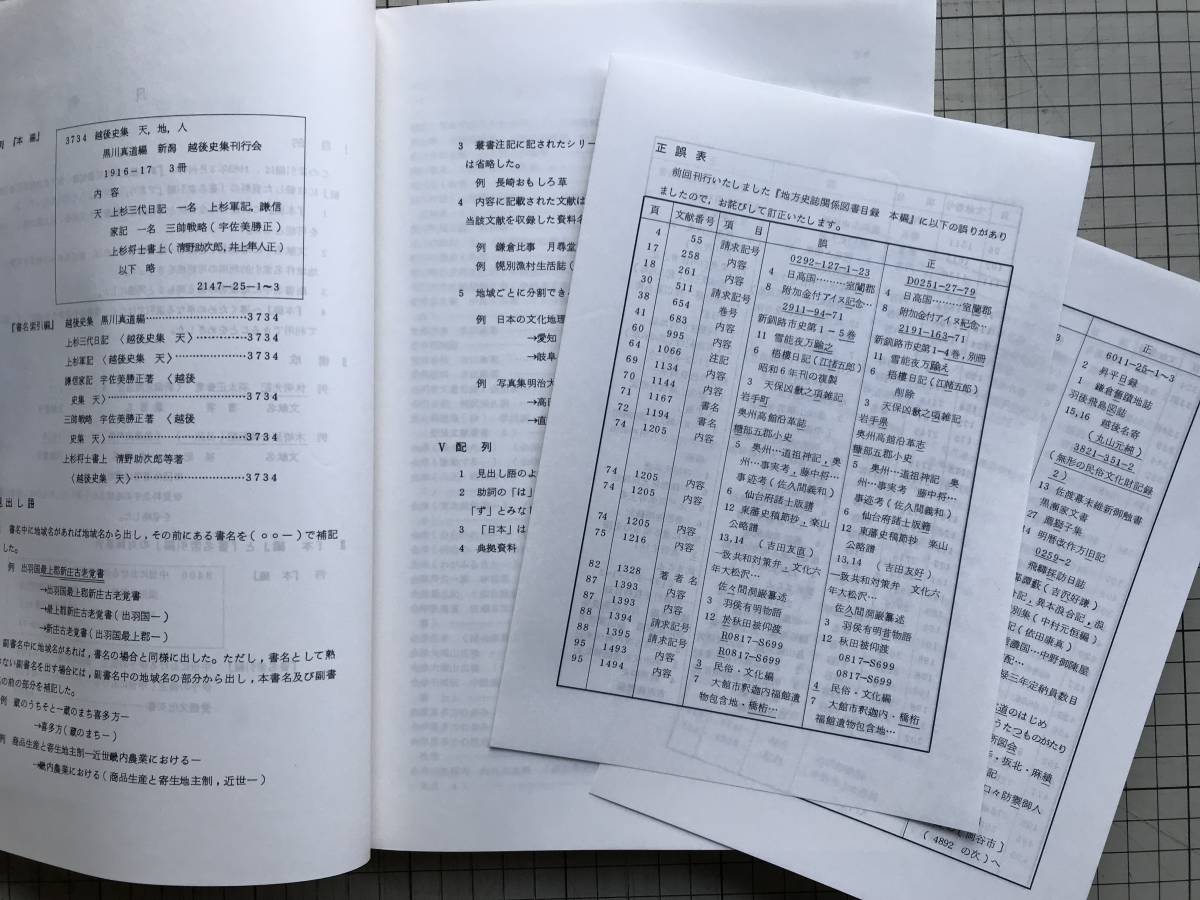 例『本編』
3734 越後史集 天,地,人
黒川真道編 新潟 越後史集刊行会
1916-17 3冊
内容
天 上杉三代日記 一名 上杉軍記,謙信
家記 一名 三帥戦略(宇佐美勝正)
上杉将士書上(清野助次郎,井上隼人正)
以下 略
2147-25-1~3
『書名索引編』 越後史集 黒川真道編……………3734
上杉三代日記 〈越後史集 天〉……………3734
上杉軍記〈越後史集 天〉……………3734
謙信家記 宇佐美勝正著 〈越後
史集 天〉……………3734
三帥戦略 宇佐美勝正著 〈越後
史集 天〉……………3734
上杉将士書上 清野助次郎等著
〈越後史集 天〉……………3734
見出し語
書名中に地域名があれば地域名から出し,その前にある書名を(○○ー)で補記
した。
例 出羽国最上郡新庄古老覚書
→出羽国最上郡新庄古老覚書
→最上郡新庄古老覚書(出羽国ー)
→新庄古老覚書(出羽国最上郡ー)
副書名中に地域名があれば,書名の場合と同様に出した。ただし,書名として熟
ない副書名を出す場合には,副書名中の地域名の部分から出し,本書名及び副書
の前の部分を補記した。
例 蔵のうちそとー蔵のまち喜多方ー
→喜多方(蔵のまちー)
例 商品生産と寄生地主制ー近世畿内農業におけるー
→畿内農業における(商品生産と寄生地主制,近世ー)
3 叢書注記に記されたシリー
は省略した。
例 長崎おもしろ草
4 内容に記載された文献は
当該文献を収録した資料名
例 鎌倉比事 月尋堂
例 幌別漁村生活誌(
5 地域ごとに分割でき
例 日本の文化地理
→愛知
→岐阜
例 写真集明治大
→高
→直
V 配列
1 見出し語のよ
2 助詞の「は」
「ず」とみな
3 「日本」は
4 典拠資料
正誤表
前回刊行いたしました『地方史誌関係図書目録 本編』に以下の誤りがあり
ましたので,お詫びして訂正いたします。
頁 文献番号 項目 誤 正
4 55 請求記号 0292-127-1-23 D0251-27-79
17 258 内容 4 日高国………室蘭郡 4 日高国………室蘭郡
18 261 内容 8 附加金付アイヌ記念… 8 附加金付アイヌ紀念…
30 511 請求記号 2911-94-71 2191-163-71
38 654 巻号 新釧路市史第1-5巻 新釧路市史第1-4巻,別冊
41 683 内容 11 雪能夜万踰之 11 雪能夜万踰え
60 995 内容 6 梧棲日記(江諸五郎) 6 梧棲日記(江諸五郎)
64 1066 注記 昭和6年刊の複製 削除
69 1134 内容 3 天保凶歉之項雑記 3 天保凶歉之項雑記
70 1144 内容 岩手町 岩手県
71 1167 書名 奥州高館沿革誌 奥州高館沿革志
72 1194 書名 糠部五郡小史 糠部五郡小史
74 1205 内容 5 奥州…道祖神記,奥 5 奥州…道祖神記 奥
州…事実考,藤中将… 州…事実考 藤中将…
事迹考(佐久間義和) 事迹考(佐久間義和)
74 1205 内容 6 仙台府諸士版譜 6 仙台府諸士版籍
74 1205 内容 12 東藩史稿節抄,楽山 12 東藩史稿節抄 楽山
公略譜 公略譜
74 1205 内容 13,14 (吉田友直) 13,14 (吉田友好)
75 1216 内容 一致共和対策弁,文化六 一致共和対策弁 文化六
年大松沢… 年大松沢…
82 1328 著者名 佐々間洞巌纂述 佐久間洞巌纂述
87 1393 内容 3 羽侯有明物語 3 羽侯有明昔物語
87 1393 内容 12 於秋田被仰渡 12 秋田被仰渡
88 1394 請求記号 R0817-S699 0817-S699
88 1395 請求記号 R0817-S699 0817-S699
95 1493 内容 3 民俗・文化編 4 民俗・文化編
95 1494 内容 7 大館市釈迦内福館遺 7 大館市釈迦内・橋桁
物包含地・橋桁… 福館遺物包含地…
正
6011-25-1~3
2 昇平日録
1 鎌倉舊蹟地誌
羽後飛島図誌
15,16 越後名寄
(丸山元純)
3821-351-2
(無形の民俗文化財記録
2)
13 佐渡幕末維新御触書
黒瀬家文書
27 鷹癡子集
14 明暦改作方旧記
0259-2
飛驒採訪日誌
譚藪(吉沢好謙)
記,異本浪合記,浪
別集(中村元恒編)
記(依田康真)
濃国…中野御陣屋
配…
三年定納員数目
道のはじめ
うたつものがたり
新図会
・坂北・麻績
記
々防禦御人
[岡谷市]
(4892の次)へ